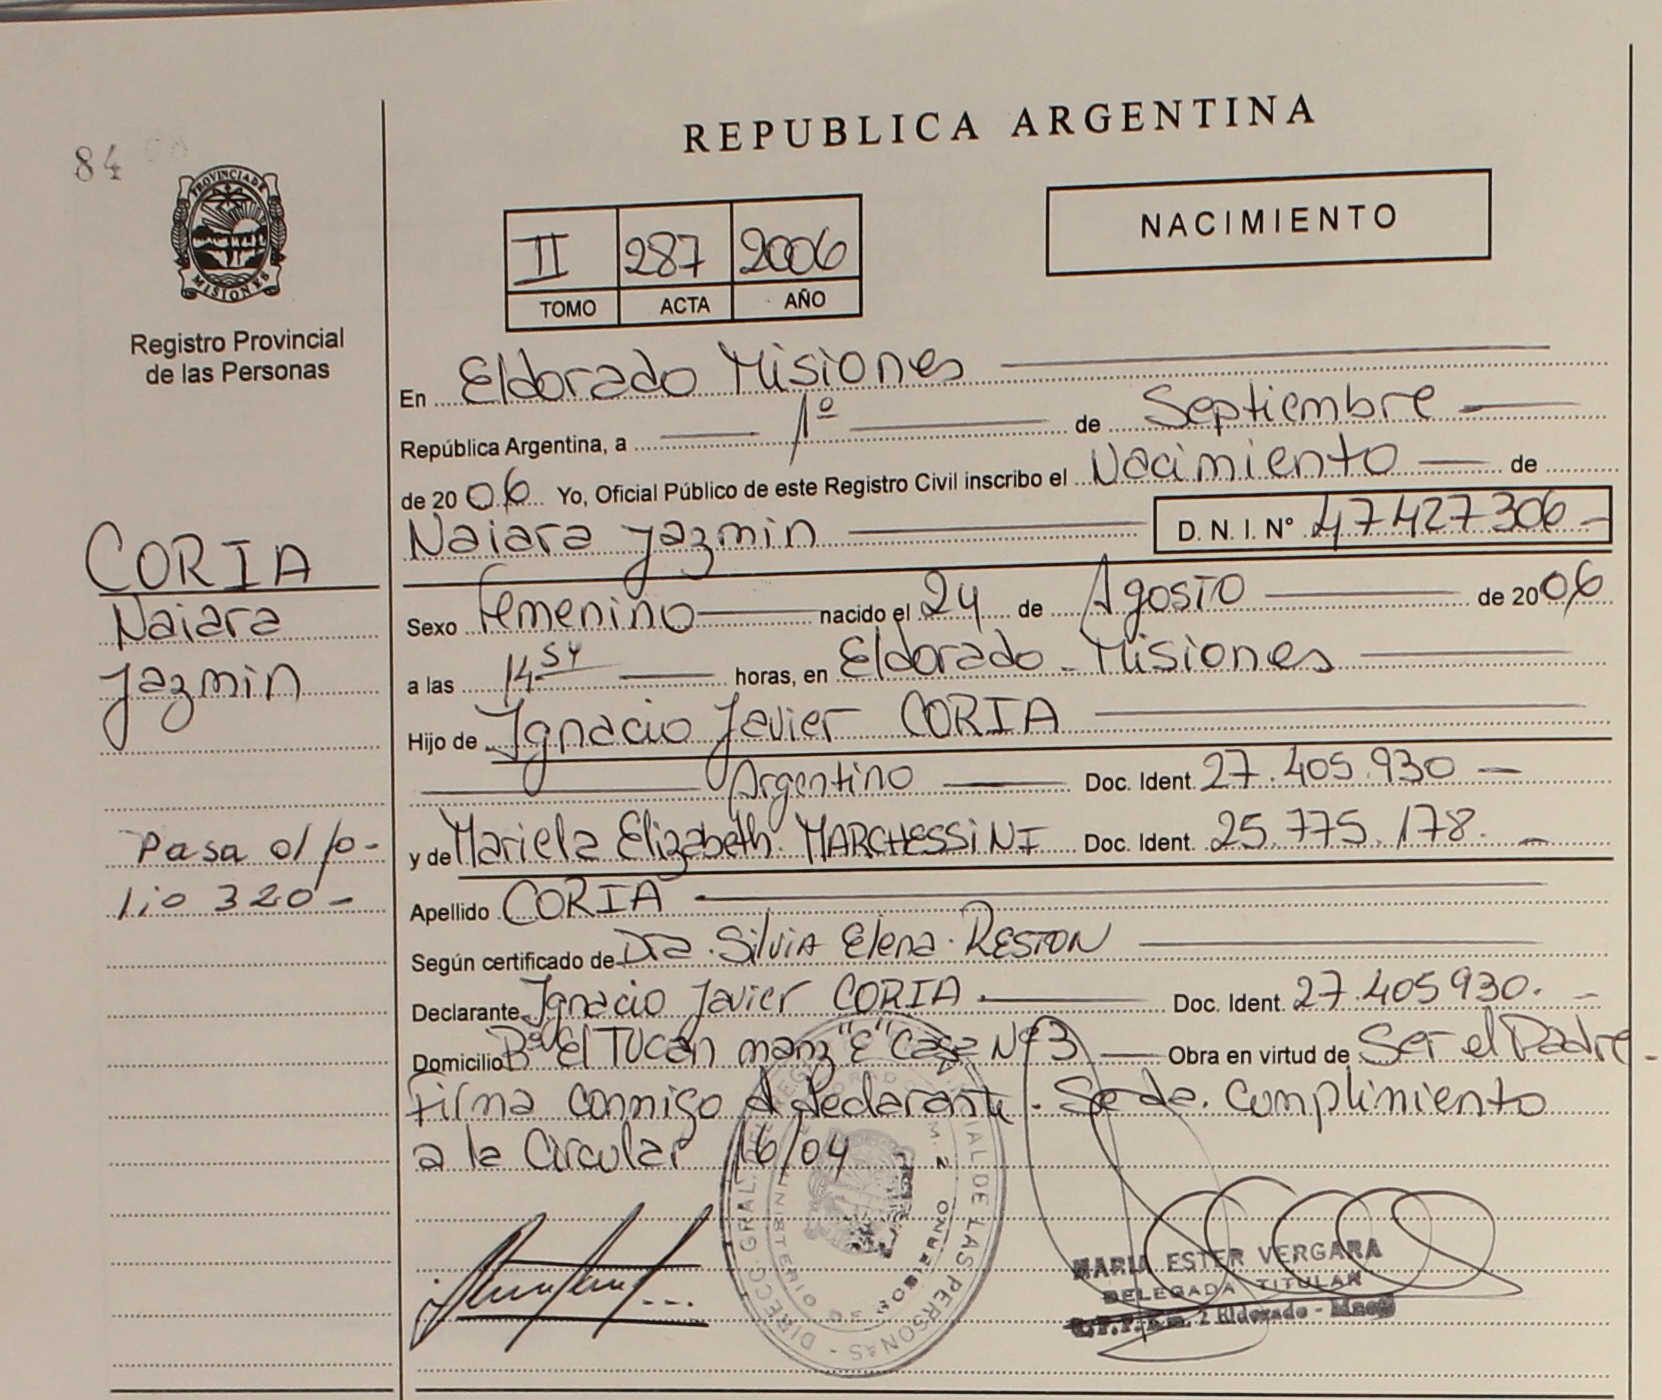 84
REPUBLICA ARGENTINA
PROVINCIA DE MISIONES
Registro Provincial
de las Personas
II 287 2006
TOMO ACTA AÑO
NACIMIENTO
En Eldorado Misiones
República Argentina, a 1º de Septiembre
de 2006 Yo, Oficial Público de este Registro Civil inscribo el Nacimiento de
Naiara Jazmin D. N. I. Nº 47427306
CORIA
Naiara
Jazmin
Sexo Femenino nacido el 24 de Agosto de 2006
a las 14 54 horas, en Eldorado - Misiones
Hijo de Ignacio Javier CORIA
Argentino Doc. Ident. 27.405.930
y de Mariela Elizabeth MARCHESSINI Doc. Ident. 25.775.178.
Pasa al fo-
lio 320-
Apellido CORIA
Según certificado de Dra. Silvia Elena RESTON
Declarante Ignacio Javier CORIA Doc. Ident. 27.405930.
Domicilio Bº El Tucán manz "E" Casa Nº 3 Obra en virtud de Ser el Padre -
Firma conmigo el declarante. Se da cumplimiento
a la Circular 16/04
MARIA ESTER VERGARA
DELEGADA TITULAR
R.P.P. Km. 2 Eldorado - Mnes